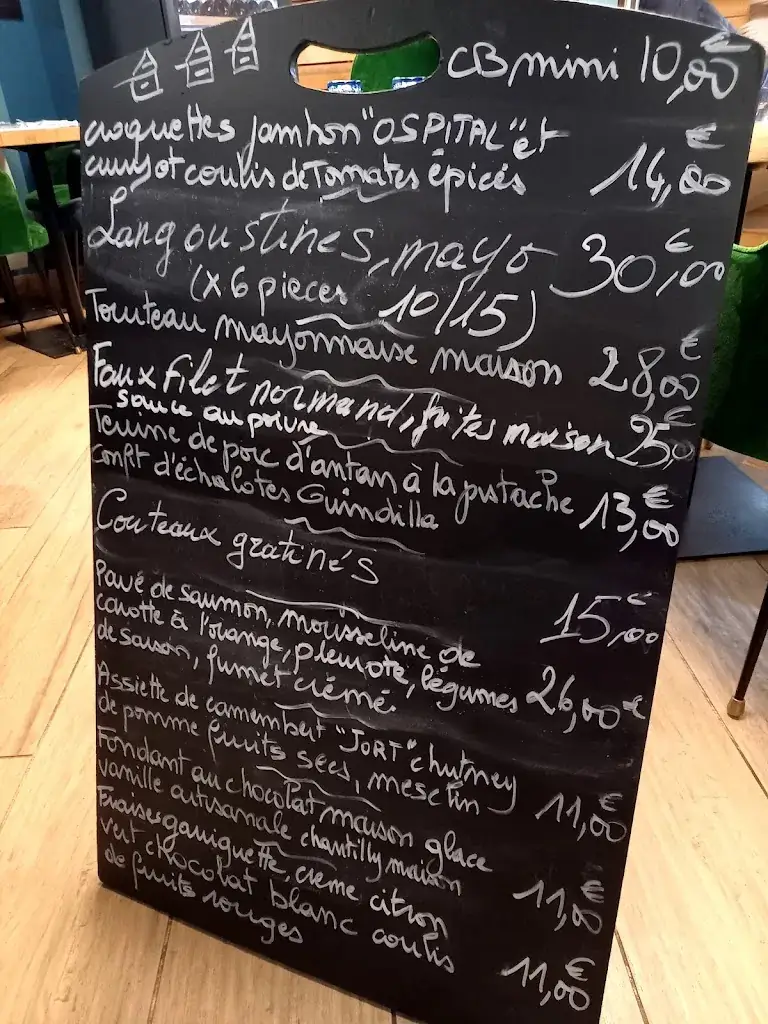 CB mini 10,00€
croquettes jambon "OSPITAL" et
curry et coulis de Tomates épicés 14,00€
Langoustines, mayo 30,00€
(x 6 pieces 10/15)
Tourteau mayonnaise maison 28,00€
Faux filet normand, frites maison 25,0€
sauce au poivre
Terrine de porc d'antan à la pistache
confit d'échalotes Guindilla 13,00€
Couteaux gratinés
15,00€
Pavé de saumon, mousseline de
carotte à l'orange, pleurote, légumes
de saison, fumet crémé. 26,00€
Assiette de camembert "JORT" chutney
de pomme fruits secs, mesclun 11,00€
Fondant au chocolat maison glace
vanille artisanale chantilly maison 11,00€
Fraises gariguette, creme citron
vert chocolat blanc coulis
de fruits rouges 11,00€